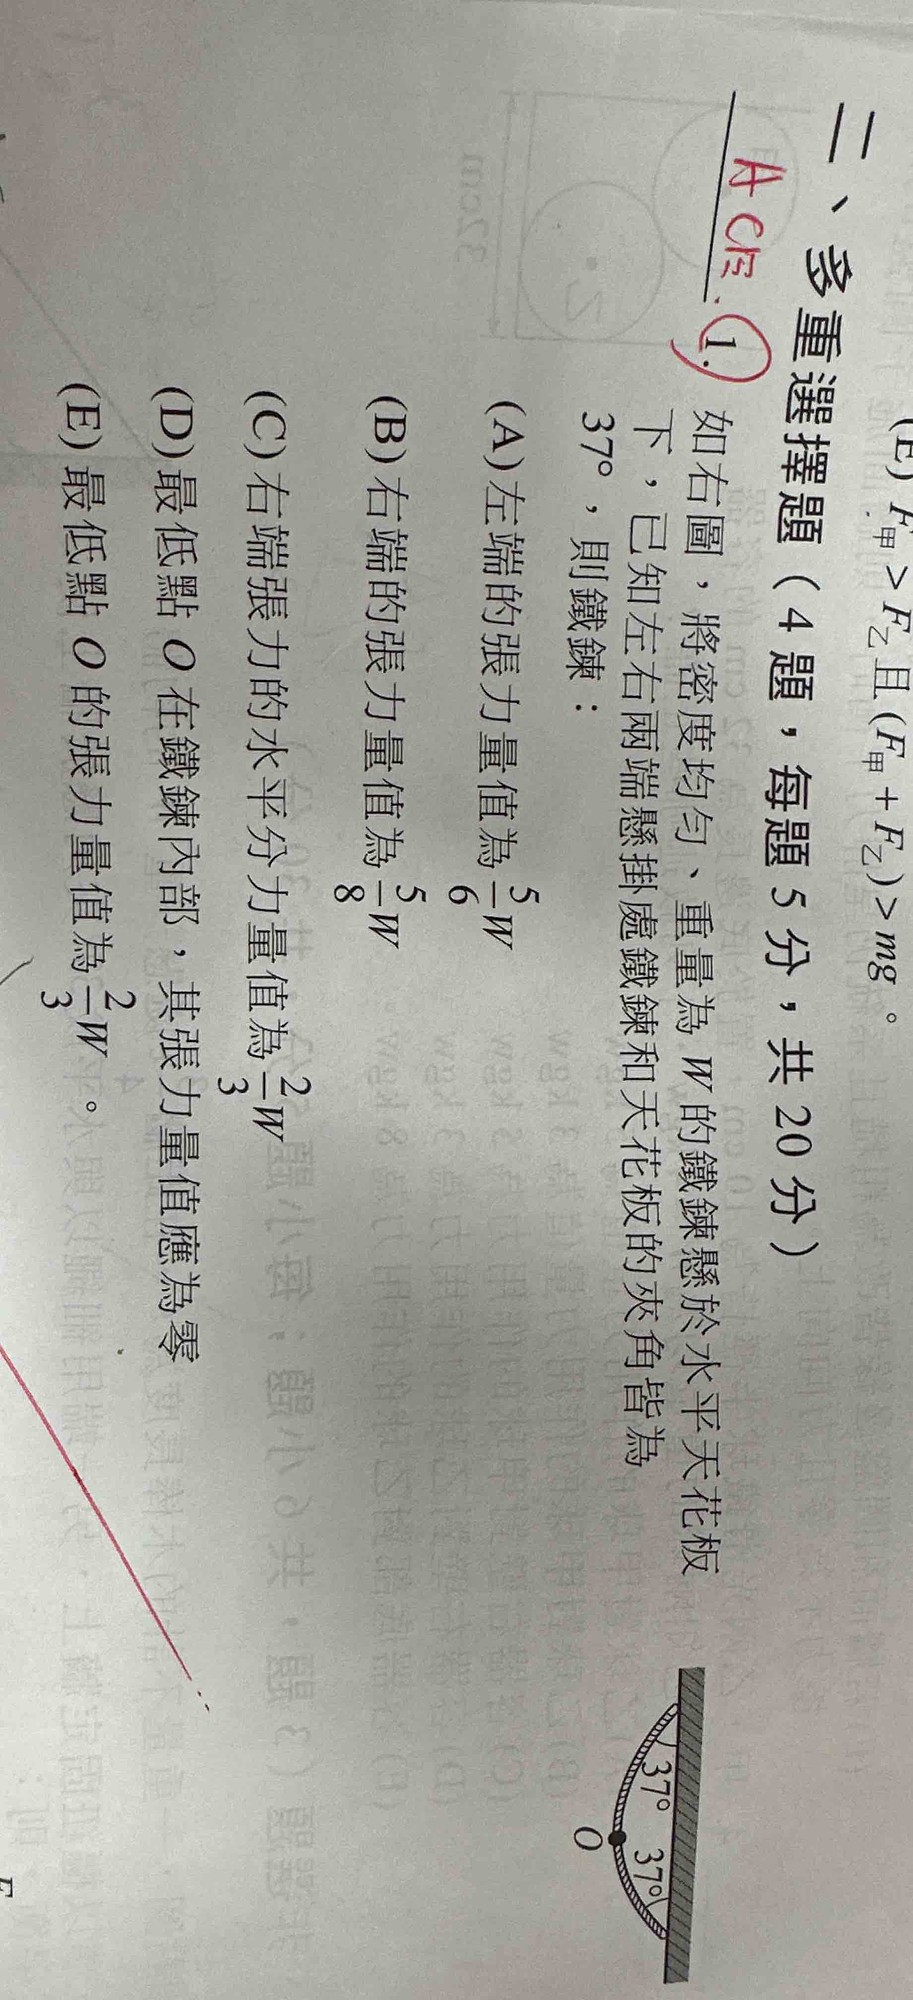 (E) F甲 > F乙且(F甲 + F乙) > mg 。
二、多重選擇題(4題,每題5分,共20分)
ACE. 1. 如右圖,將密度均勻、重量為 W 的鐵鍊懸於水平天花板
下,已知左右兩端懸掛處鐵鍊和天花板的夾角皆為
37°,則鐵鍊:
(A)左端的張力量值為 5/6 W
(B)右端的張力量值為 5/8 W
(C)右端張力的水平分力量值為 2/3 W
(D)最低點 O 在鐵鍊內部,其張力量值應為零
(E)最低點 O 的張力量值為 2/3 W 。
37° 37°
O